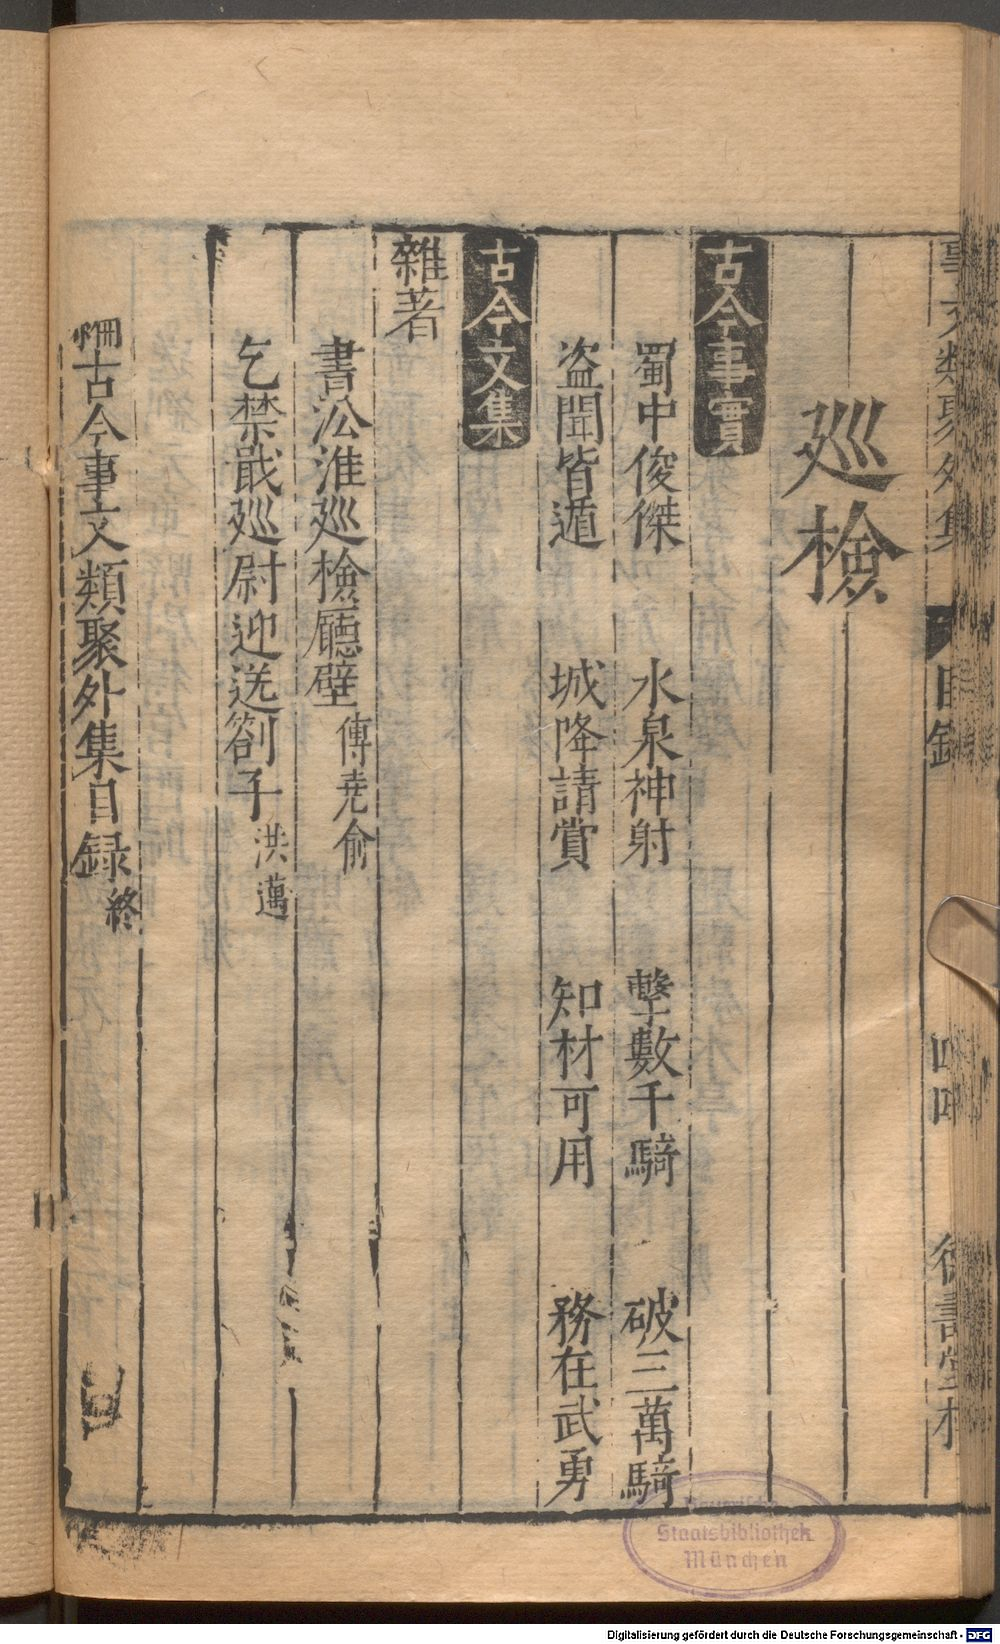 巡檢
古今事實
蜀中俊傑 水泉神射 擊數千騎 破三萬騎
盗聞皆遁 城降請賞 知材可用 務在武勇
古今文集
雜著
書㳂淮巡檢廳壁 傳堯俞
乞禁戢巡尉迎送劄子 洪邁
古今事文類聚外集目録終
Bayerische
Staatsbibliothek
München
Digitalisierung gefördert durch die Deutsche Forschungsgemeinschaft - DFG